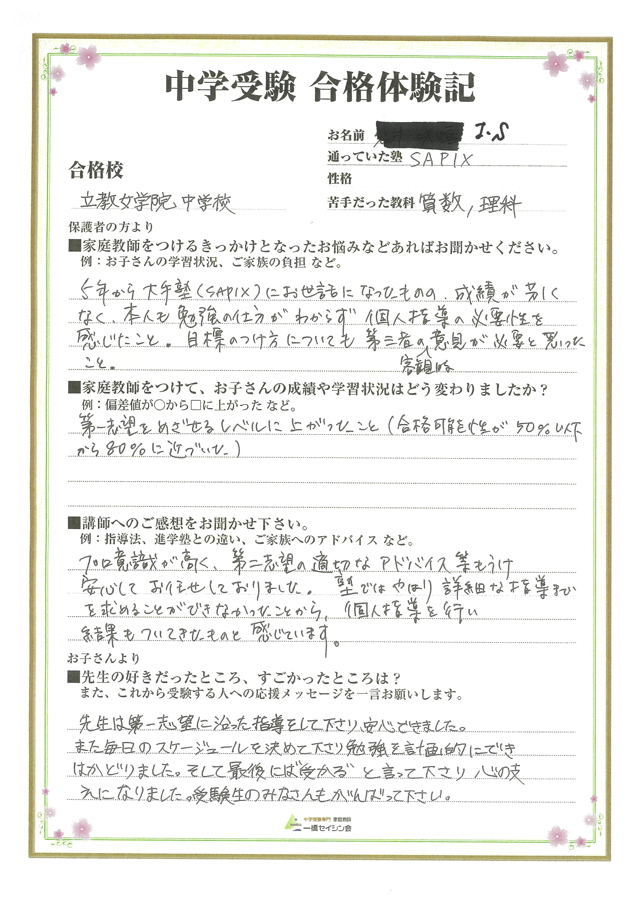 中学受験 合格体験記
お名前 J.S
通っていた塾 SAPIX
性格
合格校
立教女学院中学校
苦手だった教科 算数, 理科
保護者の方より
■家庭教師をつけるきっかけとなったお悩みなどあればお聞かせください。
例：お子さんの学習状況、ご家族の負担 など。
5年から大手塾(SAPIX)にお世話になったものの、成績が芳しく
なく、本人も勉強の仕方がわからず個人指導の必要性を
感じたこと。目標のつけ方についても第三者の意見が必要と思った
こと。 客観的
■家庭教師をつけて、お子さんの成績や学習状況はどう変わりましたか？
例：偏差値が○から□に上がった など。
第一志望をめざせるレベルに上がったこと(合格可能性が50%以下
から80%に近づいた)
■講師へのご感想をお聞かせ下さい。
例：指導法、進学塾との違い、ご家族へのアドバイス など。
プロ意識が高く、第二志望の適切なアドバイス等もうけ
安心してお任せしておりました。塾ではやはり詳細な指導まで
を求めることができなかったことから、個人指導を行い
結果もついてきたものと感じています。
お子さんより
■先生の好きだったところ、すごかったところは？
また、これから受験する人への応援メッセージを一言お願いします。
先生は第一志望に沿った指導をして下さり、安心できました。
また毎日のスケージュールを決めて下さり勉強を計画的にでき
はかどりました。そして最後には"受かる"と言って下さり心の支
えになりました。受験生のみなさんもがんばって下さい。
中学受験専門 家庭教師
一橋セイシン会